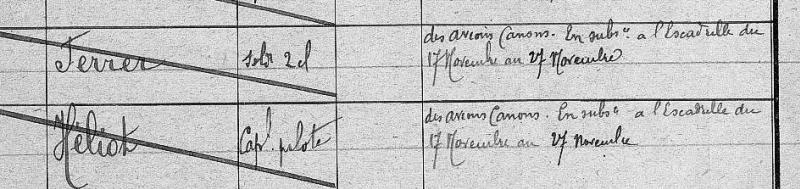 Ferrer
Solr 2 cl
des avions Canons. En subsce a l'Escadrille du
17 Novembre au 27 Novembre
Héliot
Capl. pilote
des avions Canons. En subsce a l'Escadrille du
17 Novembre au 27 novembre